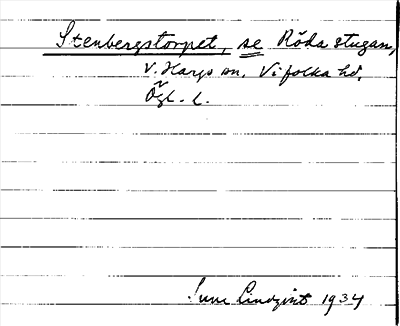 Stenbergstorpet, se Röda stugan,
V. Hargs sn, Vifolka hd,
Ögl. l.
Sune Lindqvist 1934